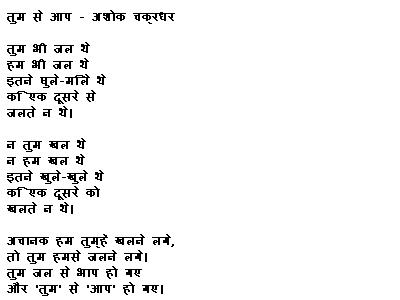 तुम से आप - अशोक चक्रधर
तुम भी जल थे
हम भी जल थे
इतने घुले-मिले थे
कि एक दूसरे से
जलते न थे।
न तुम खल थे
न हम खल थे
इतने खुले-खुले थे
कि एक दूसरे को
खलते न थे।
अचानक हम तुम्हें खलने लगे,
तो तुम हमसे जलने लगे।
तुम जल से भाप हो गए
और 'तुम' से 'आप' हो गए।